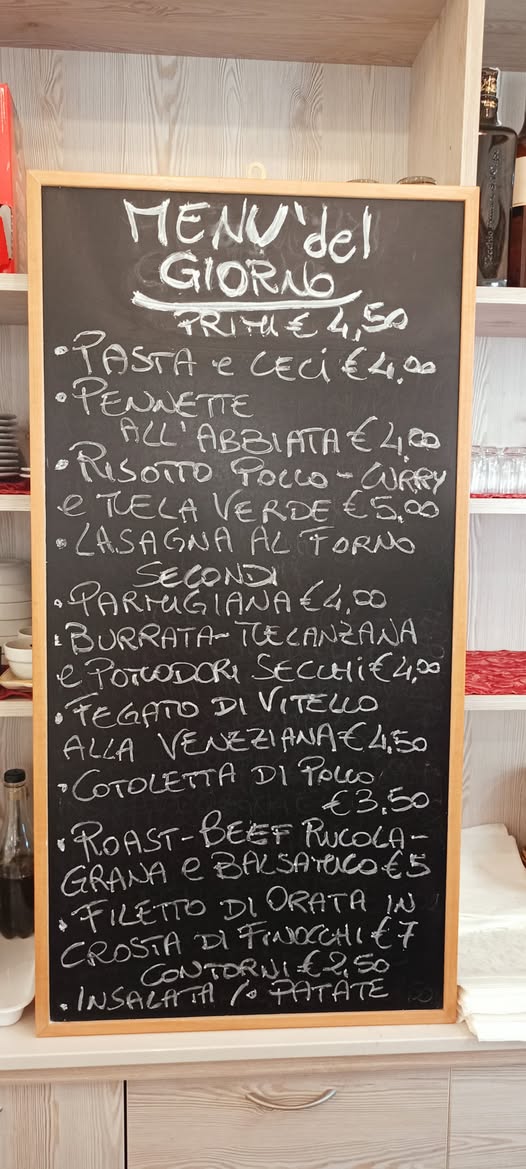 MENU' del
GIORNO
PRIMI € 4,50
• PASTA e CECI € 4,00
• PENNETTE
ALL'ABBIATA € 4,00
• RISOTTO POLLO - CURRY
e MELA VERDE € 5,00
• LASAGNA AL FORNO
SECONDI
• PARMIGIANA € 4,00
• BURRATA - MELANZANA
e POMODORI SECCHI € 4,00
• FEGATO DI VITELLO
ALLA VENEZIANA € 4,50
• COTOLETTA DI POLLO
€ 3,50
• ROAST-BEEF RUCOLA -
GRANA e BALSAMICO € 5
• FILETTO DI ORATA IN
CROSTA DI FINOCCHI € 7
CONTORNI € 2,50
• INSALATA / PATATE